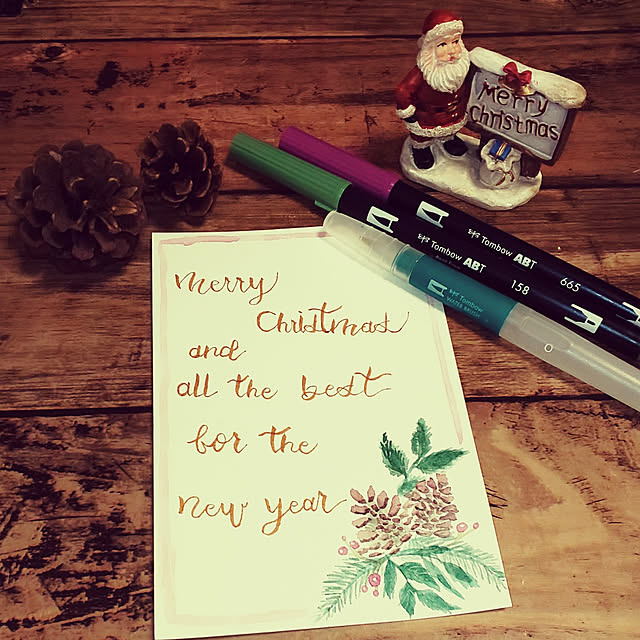 Merry Christmas
Tombow ABT 665
Tombow ABT 158
Tombow
WATER BRUSH
merry
Christmas
and
all the best
for the
new year